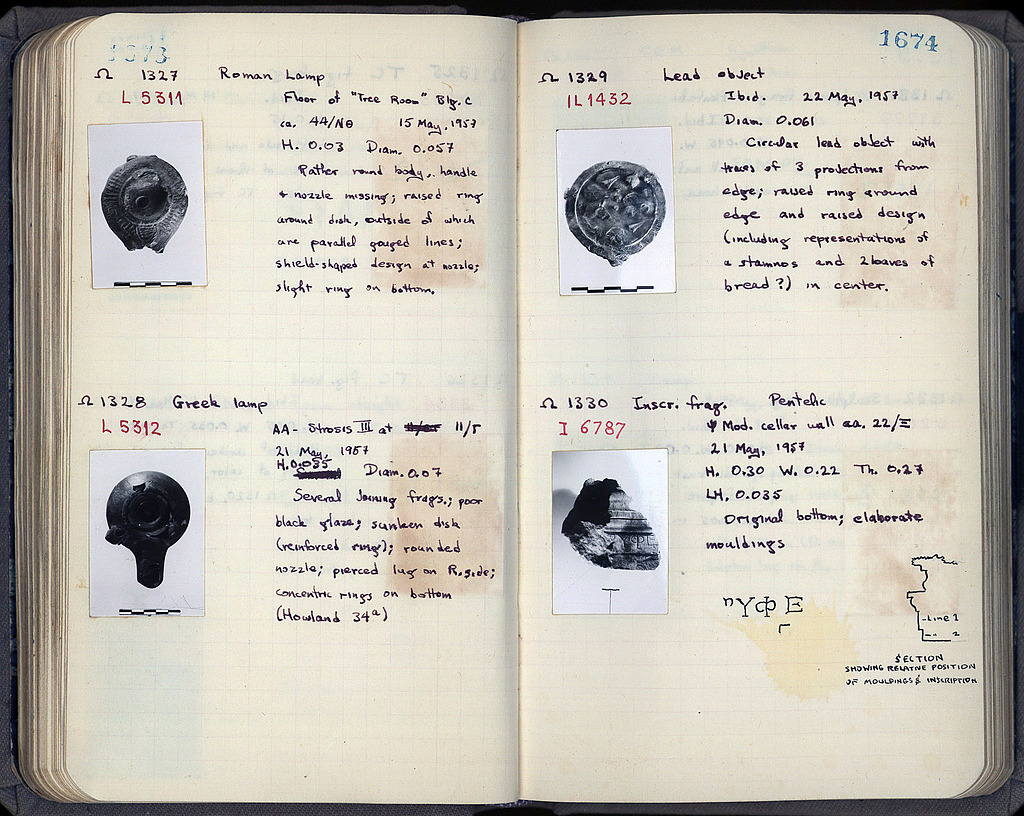 1673
Ω 1327 Roman Lamp
L 5311
Floor of "Tree Room" Blg. C
ca. 44/ΝΘ 15 May, 1957
H. 0.03 Diam. 0.057
Rather round body, handle
& nozzle missing; raised ring
around disk, outside of which
are parallel gouged lines;
shield-shaped design at nozzle;
slight ring on bottom.
Ω 1328 Greek lamp
L 5312
AA - Strosis III at 11/5
21 May, 1957
H. 0.035
Diam. 0.07
Several joining frags.; poor
black glaze; sunken disk
(reinforced ring); rounded
nozzle; pierced lug on R. side;
concentric rings on bottom
(Howland 34ª)
1674
Ω 1329 Lead object
IL 1432
Ibid. 22 May, 1957
Diam. 0.061
Circular lead object with
traces of 3 projections from
edge; raised ring around
edge and raised design
(including representations of
a stamnos and 2 loaves of
bread?) in center.
Ω 1330 Inscr. frag. Pentelic
I 6787
Ψ Mod. cellar wall ca. 22/Ξ
21 May, 1957
H. 0.30 W. 0.22 Th. 0.27
LH. 0.035
Original bottom; elaborate
mouldings
ΠΥΦΕ
Γ
Line 1
" 2
SECTION
SHOWING RELATIVE POSITION
OF MOULDINGS & INSCRIPTION